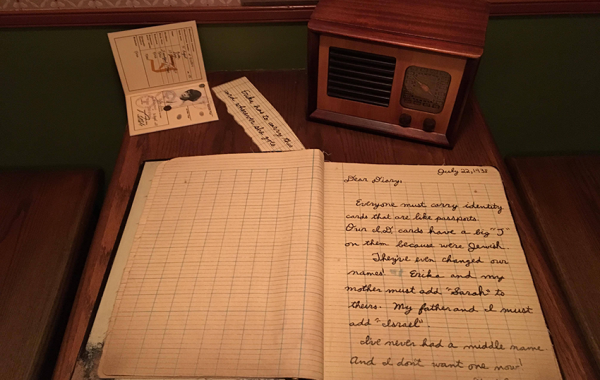 Erika had to carry this
card wherever she goes
July 22, 1938
Dear Diary,
Everyone must carry identity
cards that are like passports.
Our I.D. cards have a big "J"
on them because were Jewish.
They've even changed our
names! Erika and my
mother must add "Sarah" to
theirs. My father and I must
add "Israel".
I've never had a middle name
And I dont want one now!